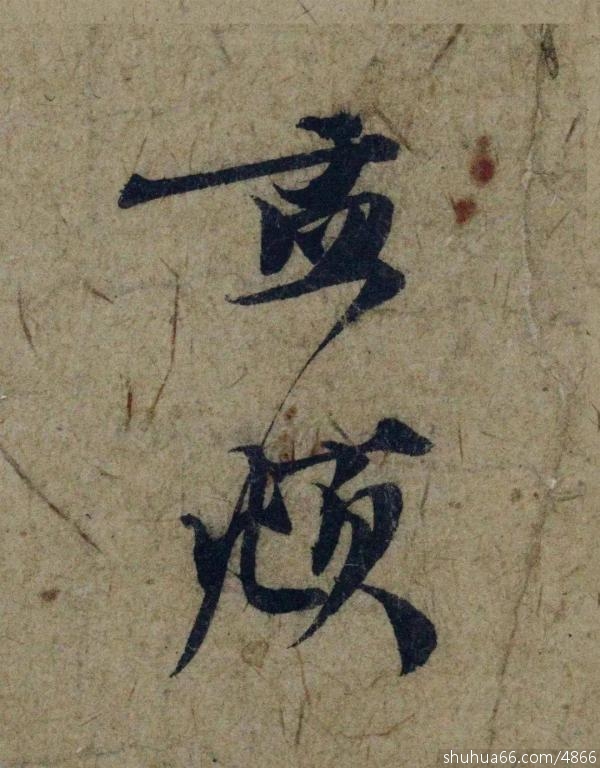 孟頫
shuhua66.com/4866